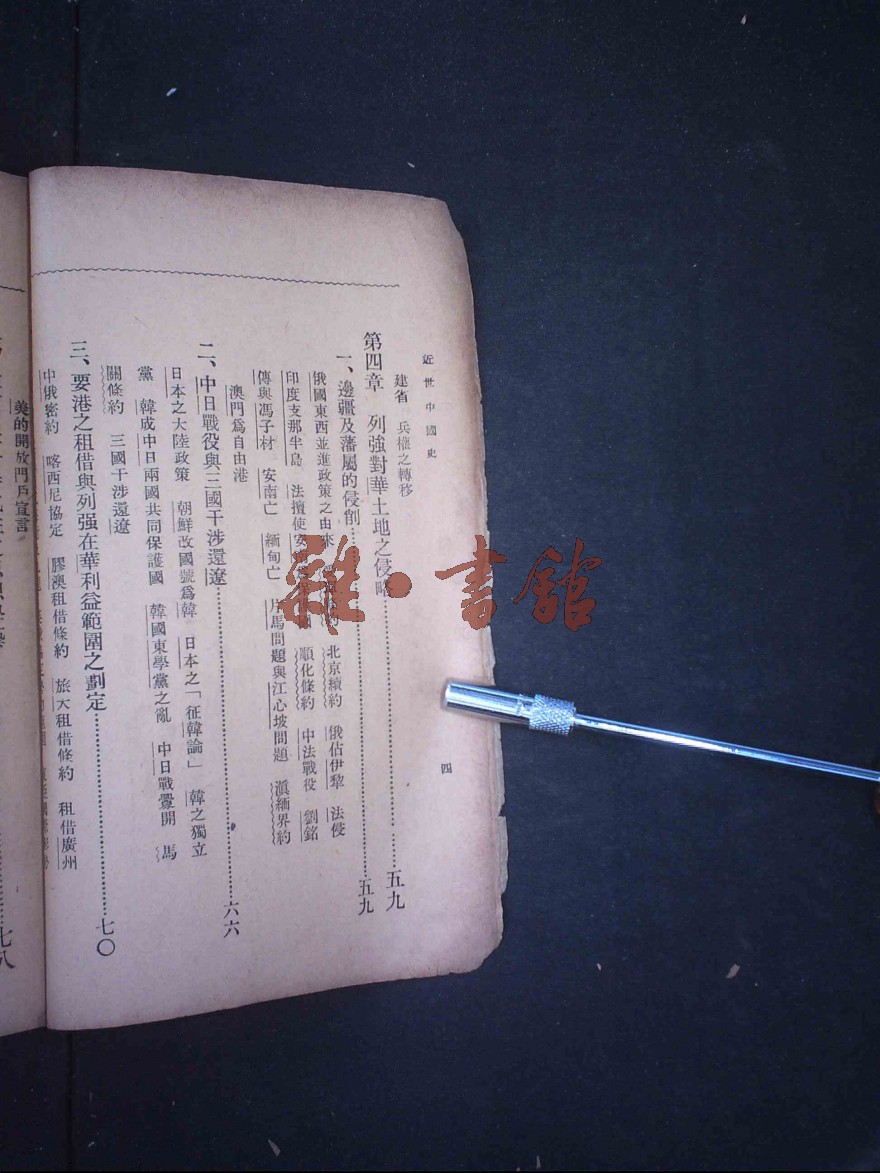 近世中國史
四
建省 兵權之轉移
第四章 列強對華土地之侵略……五九
一、邊疆及藩屬的侵削……五九
俄國東西並進政策之由來 北京續約 俄佔伊犂 法侵
印度支那半島 法擅使安 順化條約 中法戰役 劉銘
傳與馮子材 安南亡 緬甸亡 片馬問題與江心坡問題 滇緬界約
澳門爲自由港
二、中日戰役與三國干涉還遼……六六
日本之大陸政策 朝鮮改國號爲韓 日本之「征韓論」 韓之獨立
黨 韓成中日兩國共同保護國 韓國東學黨之亂 中日戰釁開 馬
關條約 三國干涉還遼
三、要港之租借與列强在華利益範圍之劃定……七〇
中俄密約 喀西尼協定 膠澳租借條約 旅大租借條約 租借廣州
美的開放門戶宣言
七八
雜·書館